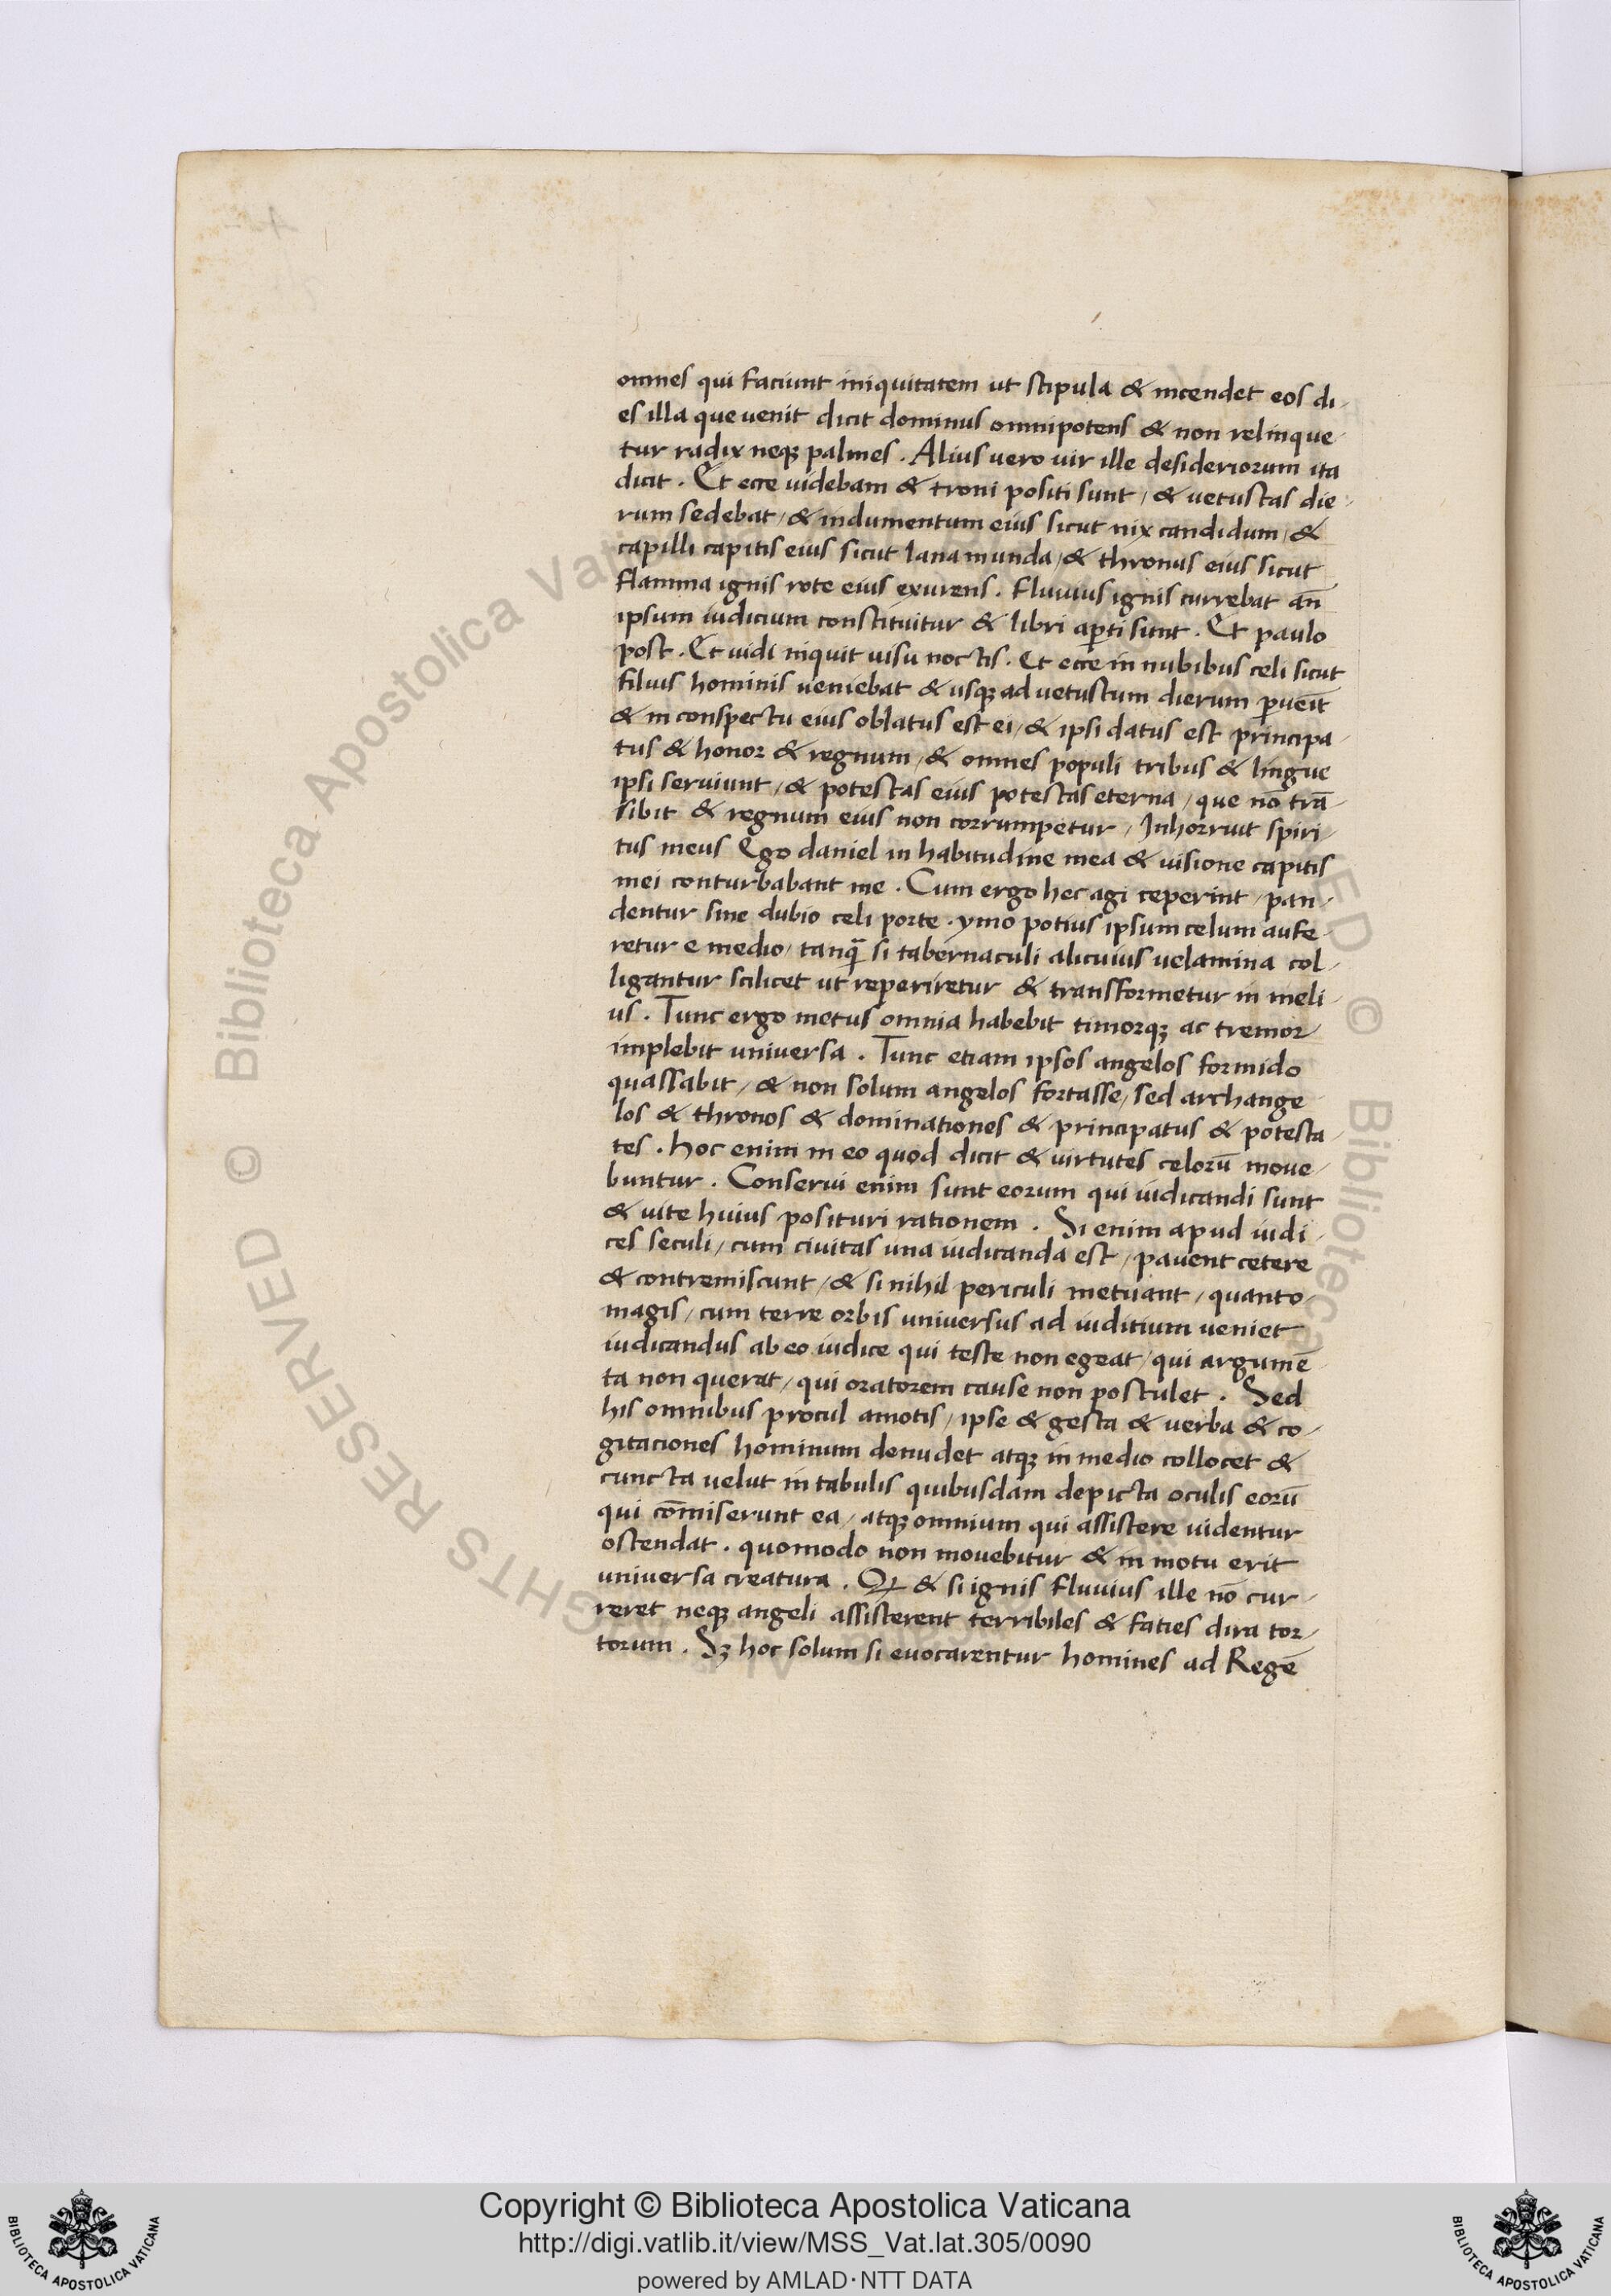 omnes qui faciunt iniquitatem ut stipula & incendet eos di-
es illa que uenit dicit dominus omnipotens & non relinque-
tur radix neqꝫ palmes . Alius uero uir ille desideriorum ita
dicit . Et ecce uidebam & troni positi sunt / & uetustas die-
rum sedebat / & indumentum eius sicut nix candidum / &
capilli capitis eius sicut lana munda / & thronus eius sicut
flamma ignis rote eius exurens . Fluuius ignis currebat añ
ipsum iudicium constituitur & libri aꝑti sunt . Et paulo
post . Et uidi inquit uisu noctis . Et ecce in nubibus celi sicut
filius hominis ueniebat & usqꝫ ad uetustum dierum ꝑueīt
& in conspectu eius oblatus est ei / & ipsi datus est principa-
tus & honor & regnum / & omnes populi tribus & lingue
ipsi seruiunt / & potestas eius potestas eterna / que nō trā-
sibit & regnum eius non corrumpetur / Inhorruit spiri-
tus meus Ego daniel in habitudine mea & uisione capitis
mei conturbabant me . Cum ergo hec agi ceperint / pan-
dentur sine dubio celi porte . ymo potius ipsum celum aufe-
retur e medio / tanq̄ si tabernaculi alicuius uelamina col-
ligantur scilicet ut reperiretur & transformetur in meli-
us . Tunc ergo metus omnia habebit timorqꝫ ac tremor
implebit universa . Tunc etiam ipsos angelos formido
quassabit / & non solum angelos fortasse / sed archange
los & thronos & dominationes & principatus & potesta-
tes . hoc enim in eo quod dicit & uirtutes celorū moue-
buntur . Conserui enim sunt eorum qui iudicandi sunt
& uite huius posituri rationem . Si enim apud iudi-
ces seculi / cum ciuitas una iudicanda est / pauent cetere
& contremiscunt / & si nihil periculi metuant / quanto
magis / cum terre orbis universus ad iuditium ueniet
iudicandus ab eo iudice qui teste non egeat / qui argumē
ta non querat / qui oratorem cause non postulet . Sed
his omnibus procul amotis / ipse & gesta & uerba & co-
gitaciones hominum denudet atqꝫ in medio collocet &
cuncta uelut in tabulis quibusdam depicta oculis eorū
qui cōmiserunt ea / atqꝫ omnium qui assistere uidentur
ostendat . quomodo non mouebitur & in motu erit
universa creatura . Qꝛ & si ignis fluuius ille nō cur-
reret neqꝫ angeli assisterent terribiles & faties dira tor-
torum . Sꝫ hoc solum si euocarentur homines ad Regē
Copyright © Biblioteca Apostolica Vaticana
http://digi.vatlib.it/view/MSS_Vat.lat.305/0090
powered by AMLAD·NTT DATA
BIBLIOTECA APOSTOLICA VATICANA
BIBLIOTECA APOSTOLICA VATICANA